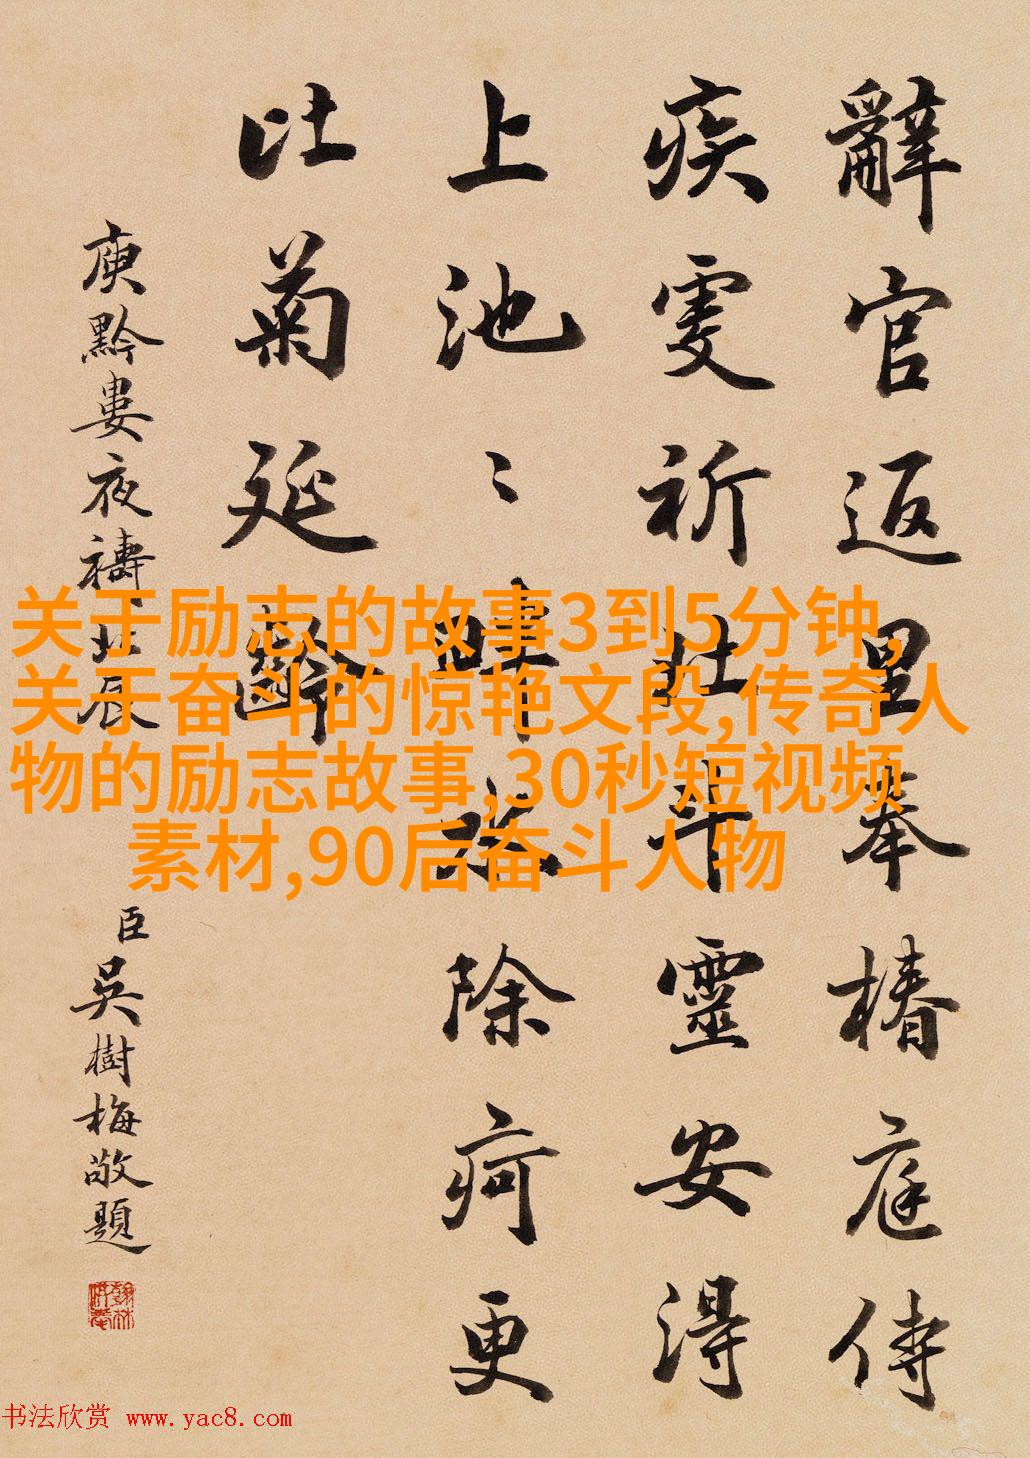 辭官返里奉椿庭侍
疾虔祈北斗靈安得
上池〻畔水除疴更
比菊延齡
庾黔婁夜禱北辰
臣吳樹梅敬題
关于励志的故事3到5分钟,
关于奋斗的惊艳文段,传奇人
物的励志故事,30秒短视频
素材,90后奋斗人物
书法欣赏 www.yac8.com